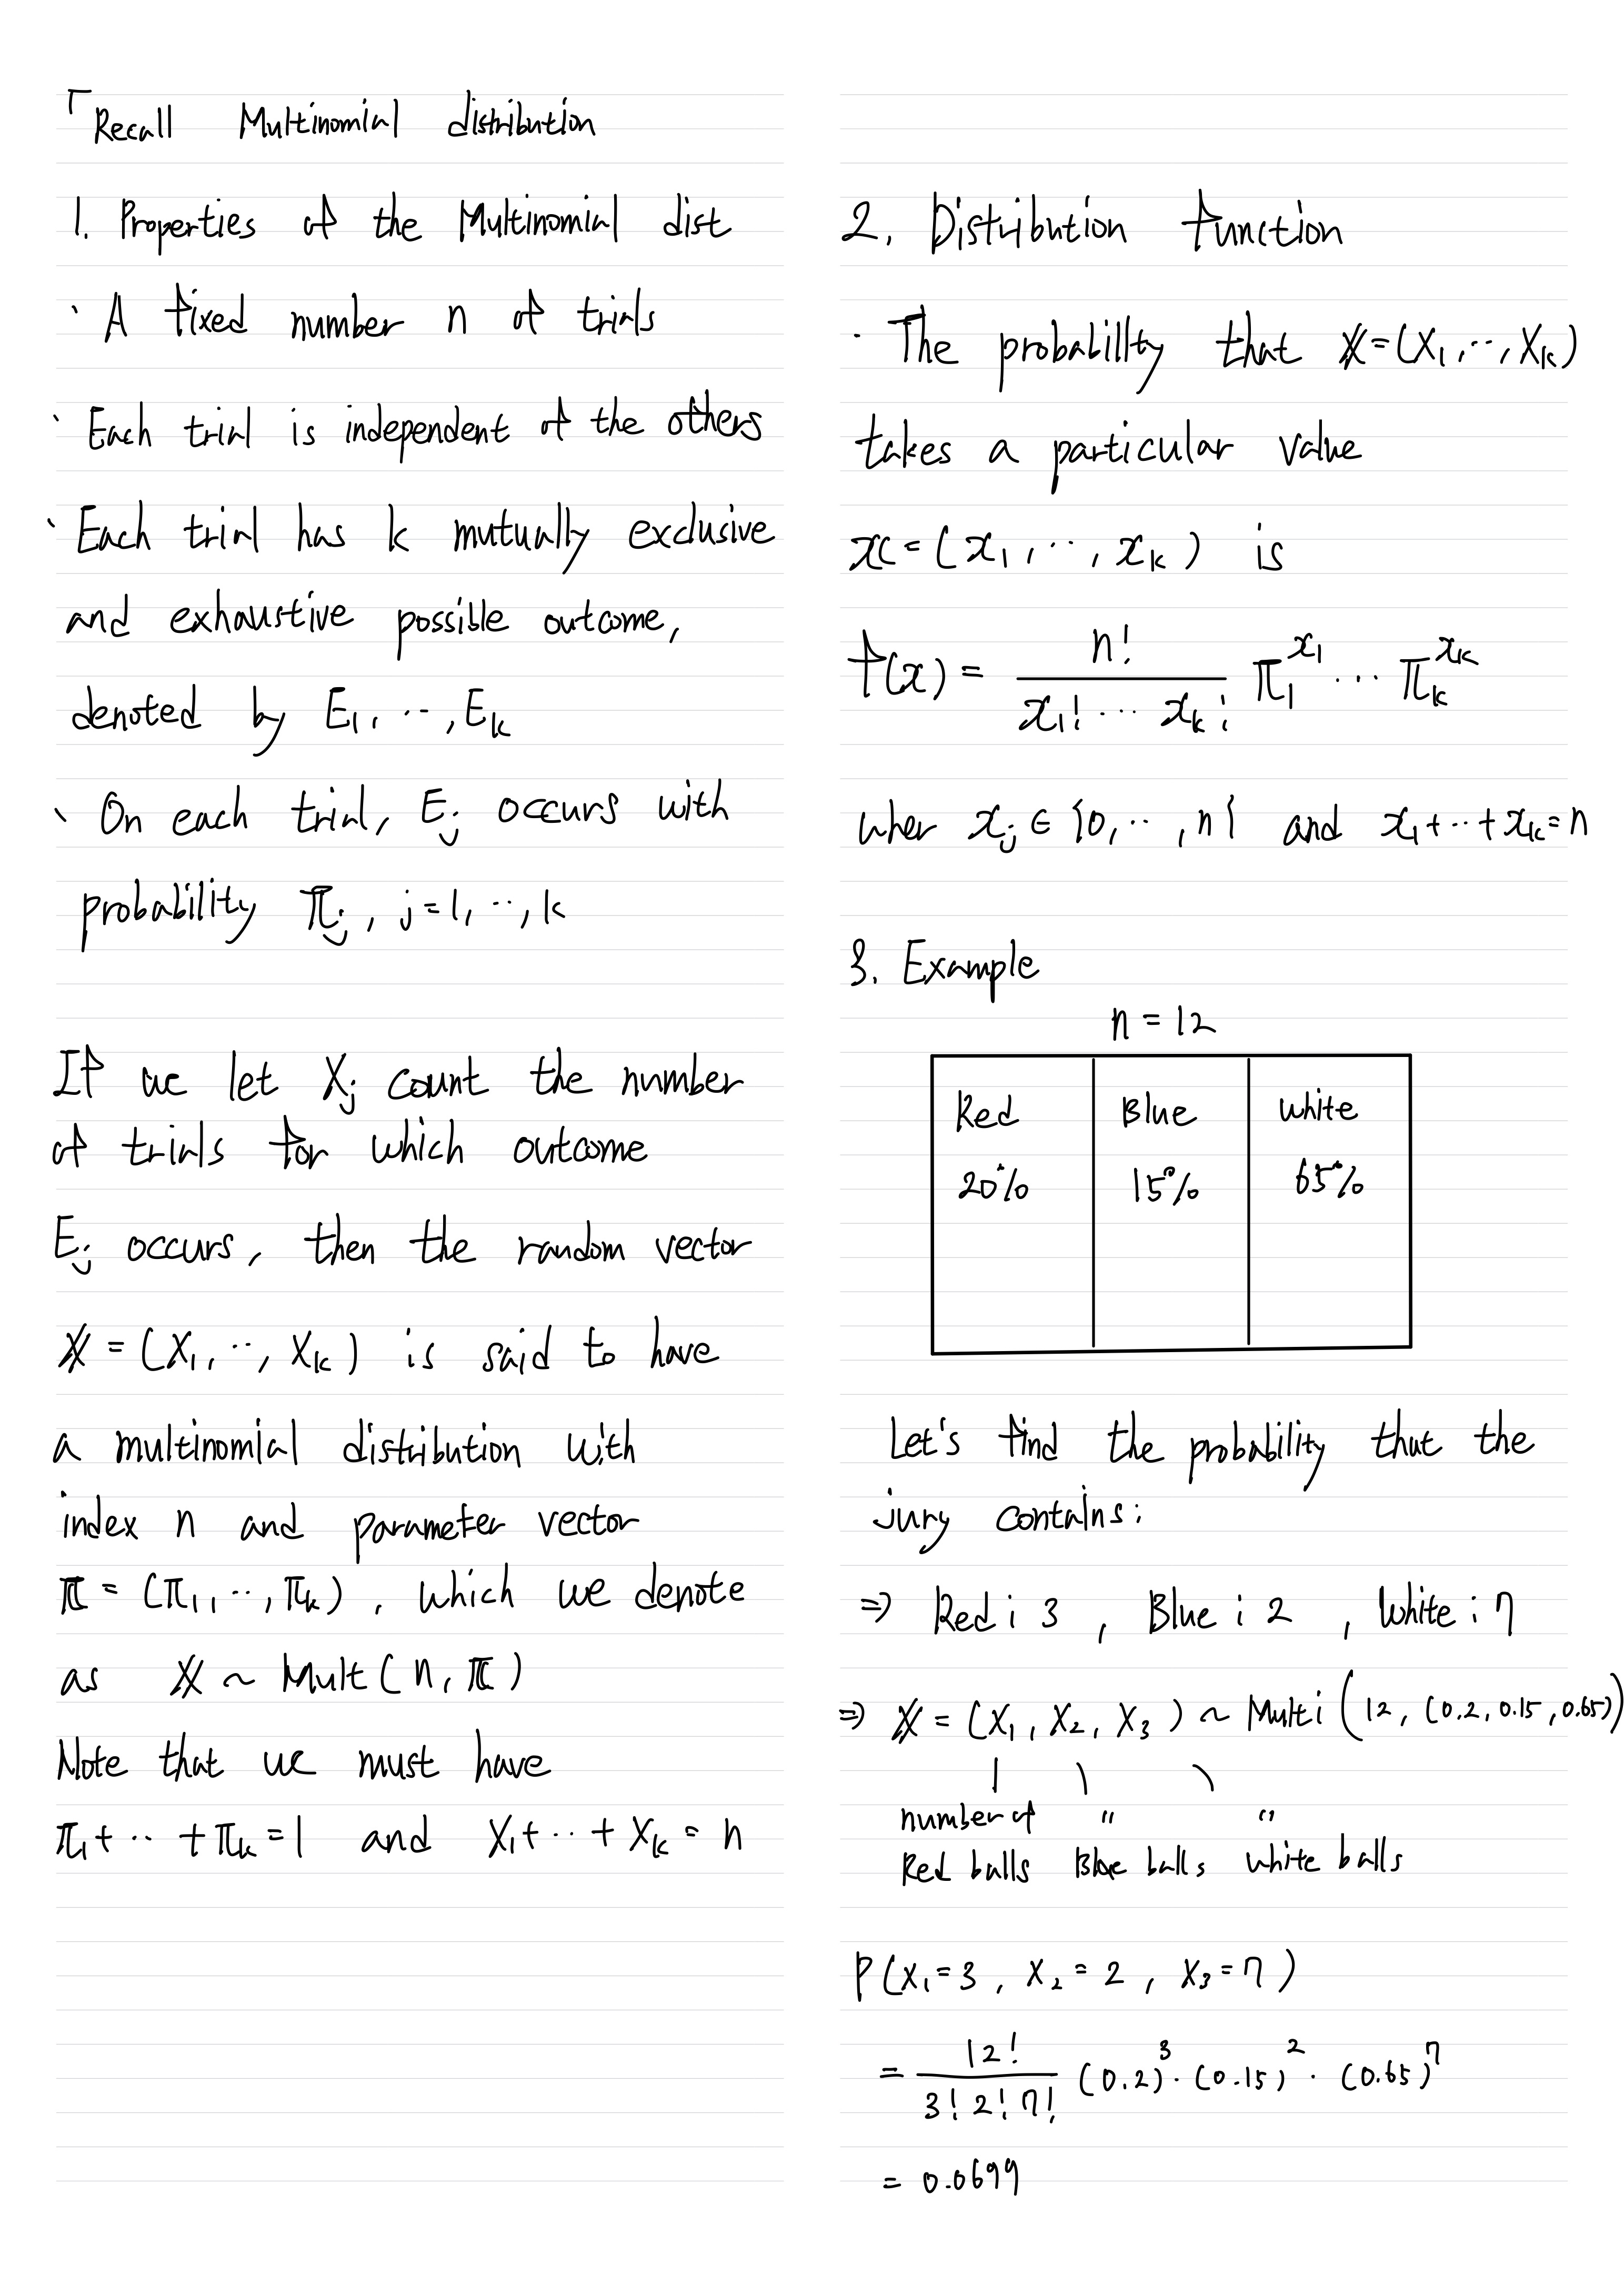 「Recall Multinomial distribution
1. Properties of the Multinomial dist
· A fixed number n of trials
· Each trial is independent of the others
· Each trial has k mutually exclusive
and exhaustive possible outcome,
denoted by E₁, ⋯, Eₖ
· On each trial, Eⱼ occurs with
probability πⱼ, j=1, ⋯, k
If we let Xⱼ count the number
of trials for which outcome
Eⱼ occurs, then the random vector
𝕏 = (X₁, ⋯, Xₖ) is said to have
a multinomial distribution with
index n and parameter vector
π = (π₁, ⋯, πₖ), which we denote
as 𝕏 ~ Mult(n, π)
Note that we must have
π₁+ ⋯ +πₖ=1 and X₁+ ⋯ + Xₖ = n
2. Distribution function
· The probability that 𝕏=(X₁, ⋯, Xₖ)
takes a particular value
x = (x₁, ⋯, xₖ) is
f(x) = n! / (x₁! ⋯ xₖ!) π₁^x₁ ⋯ πₖ^xₖ
wher xⱼ ∈ {0, ⋯, n} and x₁+ ⋯ +xₖ=n
3. Example
n = 12
Red Blue white
20% 15% 65%
Let's find the probability that the
jury contains:
⇒ Red : 3 , Blue : 2 , White : 7
⇒ 𝕏 = (X₁, X₂, X₃) ~ Multi (12, (0.2, 0.15, 0.65))
number of " "
Red balls Blue balls white balls
P(X₁=3, X₂=2, X₃=7)
= 12! / (3! 2! 7!) (0.2)³ · (0.15)² · (0.65)⁷
= 0.0699